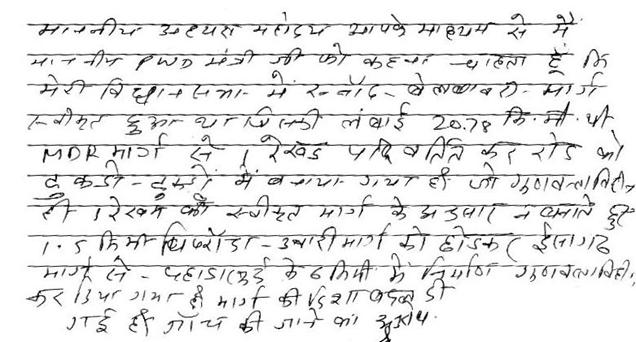 माननीय अध्यक्ष महोदय आपके माध्यम से मैं
माननीय PWD मंत्री जी को कहना चाहता हूँ कि
मेरी विधानसभा में रन्नौद - मार्ग
स्वीकृत हुआ था जिसकी लंबाई 20.78 कि.मी. थी
MDR मार्ग से । रेखड़ परिवर्तित कर रोड को
टुकडों - टुकडों में बनाया गया है जो गुणवत्ताविहीन
है । रेखड़ की स्वीकृत मार्ग के अनुसार न बनाते हुए
1.5 किमी - मार्ग को छोडकर ईसागढ
मार्ग से - के 6 किमी में निर्माण गुणवत्ताविहीन
कर दिया गया है मार्ग की दिशा बदल दी
गई है। जाँच की जाने का